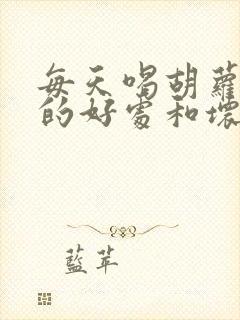 每天喝胡蘿
的好處和壞
藍苹